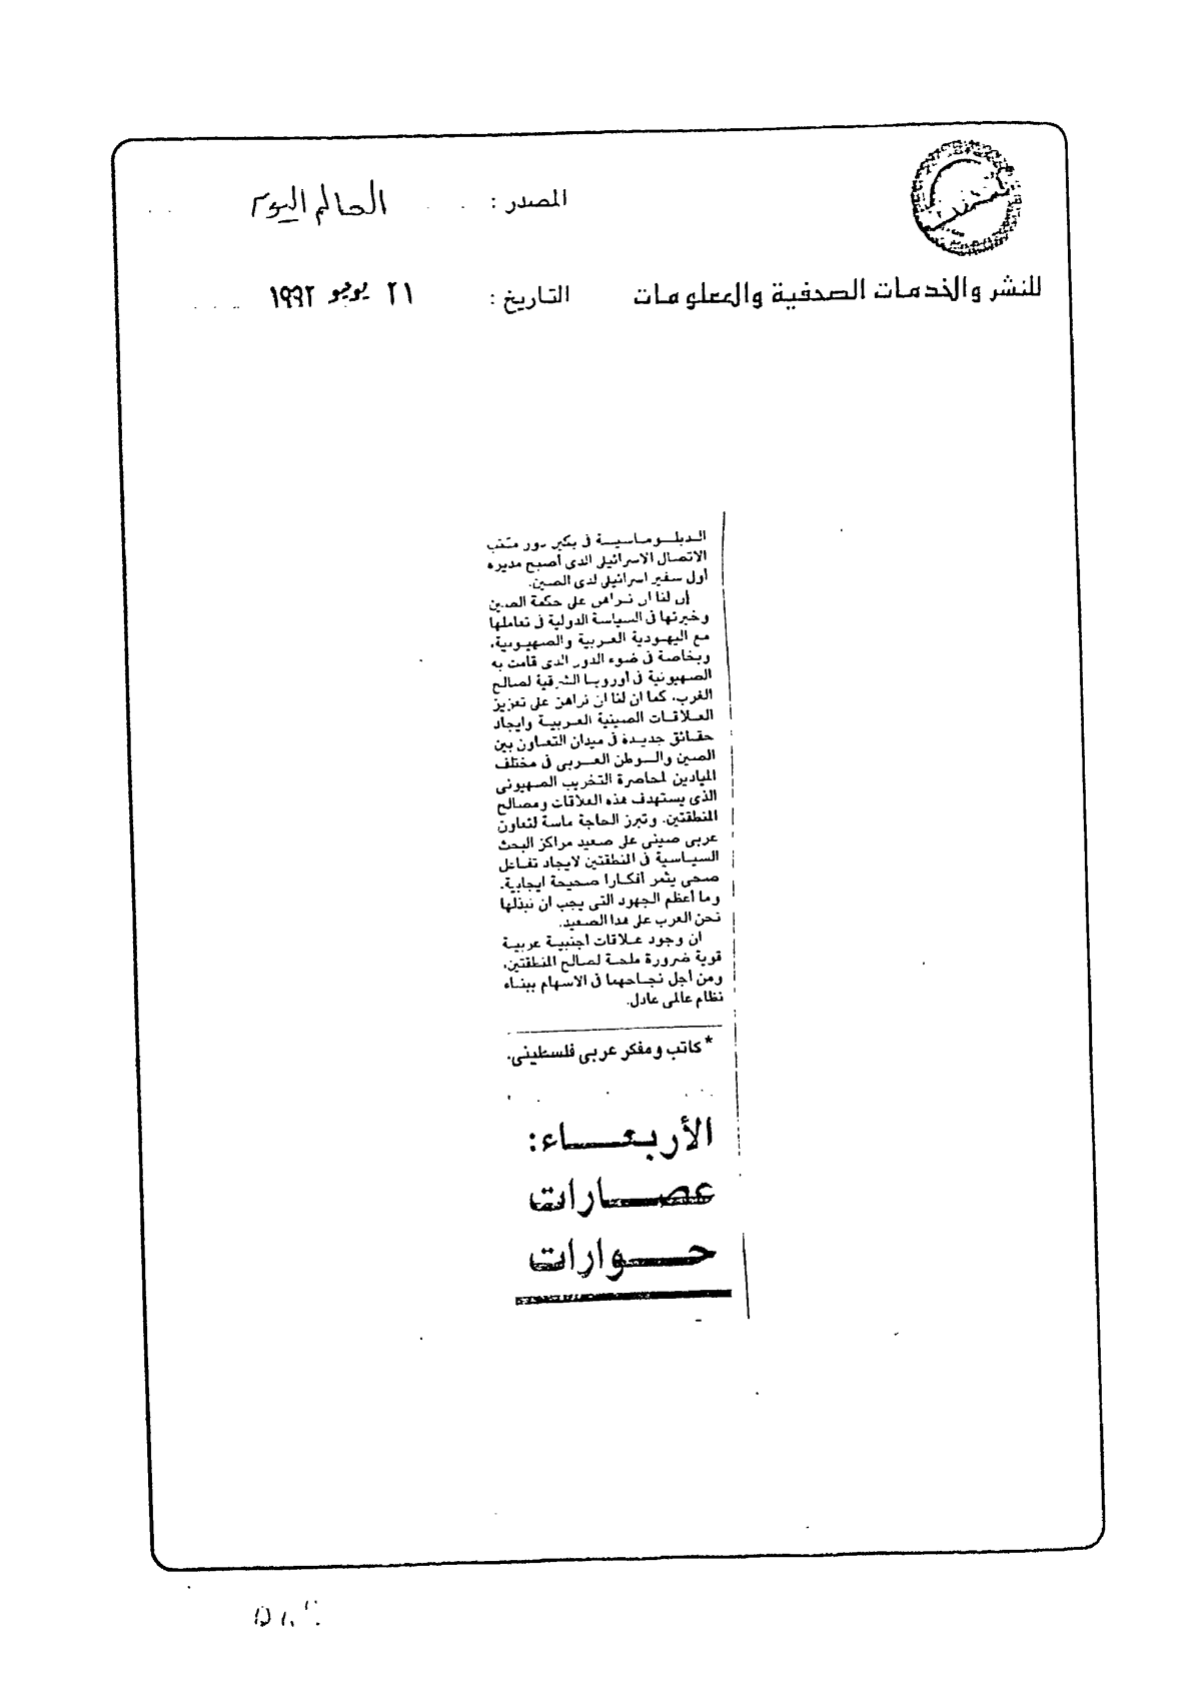 المصدر : العالم اليوم
للنشر والخدمات الصحفية والمعلومات
التاريخ : ٢١ يونيو ١٩٩٢
الدبلوماسية فى بكين دور مكتب
الاتصال الاسرائيلى الذى أصبح مديره
أول سفير اسرائيلى لدى الصين.
إن لنا ان نراهن على حكمة الصين
وخبرتها فى السياسة الدولية فى تعاملها
مع اليهودية العربية والصهيونية،
وبخاصة فى ضوء الدور الذى قامت به
الصهيونية فى أوروبا الشرقية لصالح
الغرب. كما ان لنا ان نراهن على تعزيز
العلاقات الصينية العربية وايجاد
حقائق جديدة فى ميدان التعاون بين
الصين والوطن العربى فى مختلف
الميادين لمحاصرة التخريب الصهيونى
الذى يستهدف هذه العلاقات ومصالح
المنطقتين. وتبرز الحاجة ماسة لتعاون
عربى صينى على صعيد مراكز البحث
السياسية فى المنطقتين لايجاد تفاعل
صحى يثمر أفكارا صحيحة ايجابية.
وما أعظم الجهود التى يجب ان نبذلها
نحن العرب على هذا الصعيد.
ان وجود علاقات أجنبية عربية
قوية ضرورة ملحة لصالح المنطقتين،
ومن أجل نجاحهما فى الاسهام ببناء
نظام عالمى عادل.
* كاتب ومفكر عربى فلسطينى.
الأربعاء:
عصارات
حوارات